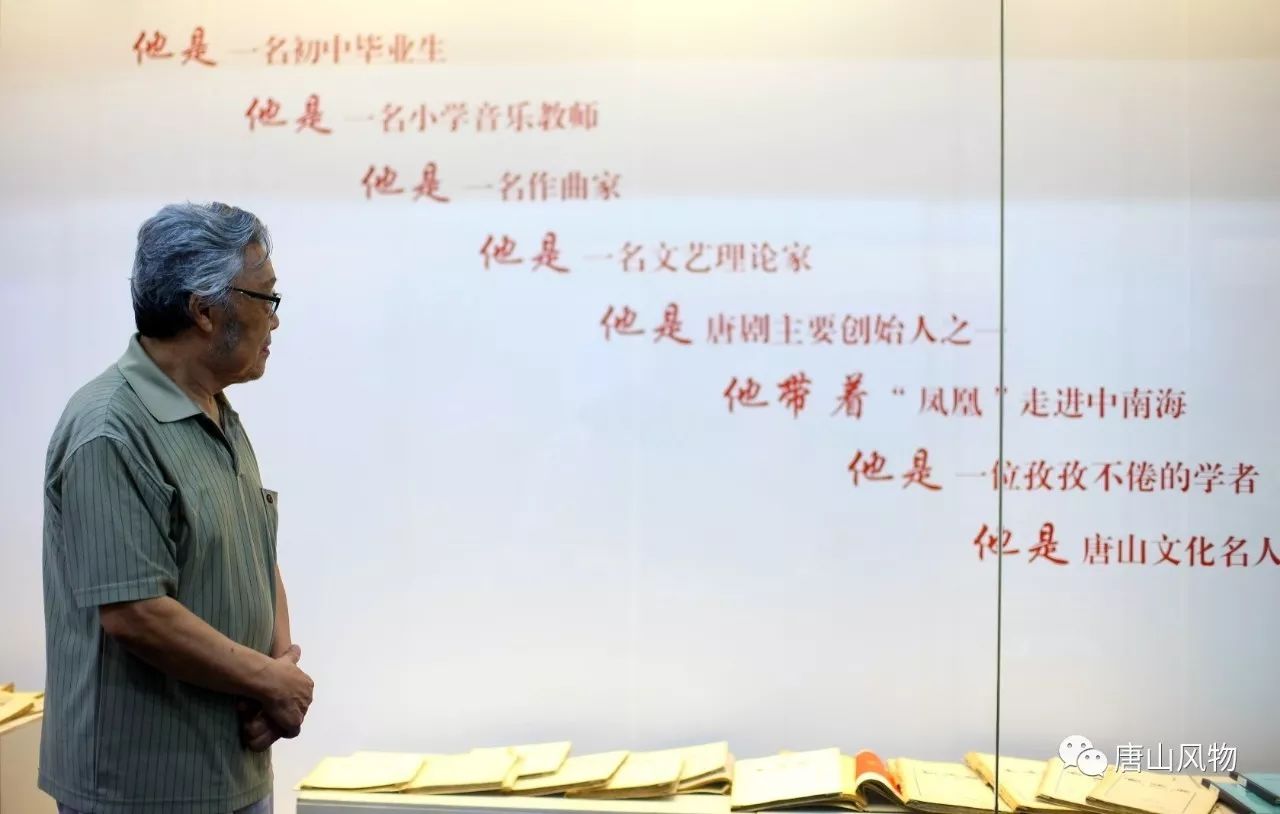 他是 一名初中毕业生
他是 一名小学音乐教师
他是 一名作曲家
他是 一名文艺理论家
他是 唐剧主要创始人之一
他带着“凤凰”走进中南海
他是 一位孜孜不倦的学者
他是 唐山文化名人
唐山风物